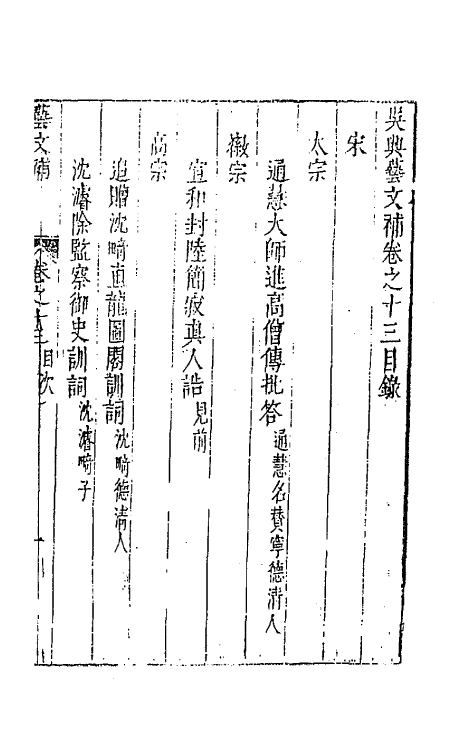 吳興藝文補卷之十三目錄
宋
太宗
通慧大師進高僧傳批答通慧名贊寧德清人
徽宗
宣和封陸簡寂真人誥見前
高宗
追贈沈畸直龍圖閣訓詞沈畸德清人
沈濬除監察御史訓詞沈濬畸子
藝文補
卷之十三目次
一